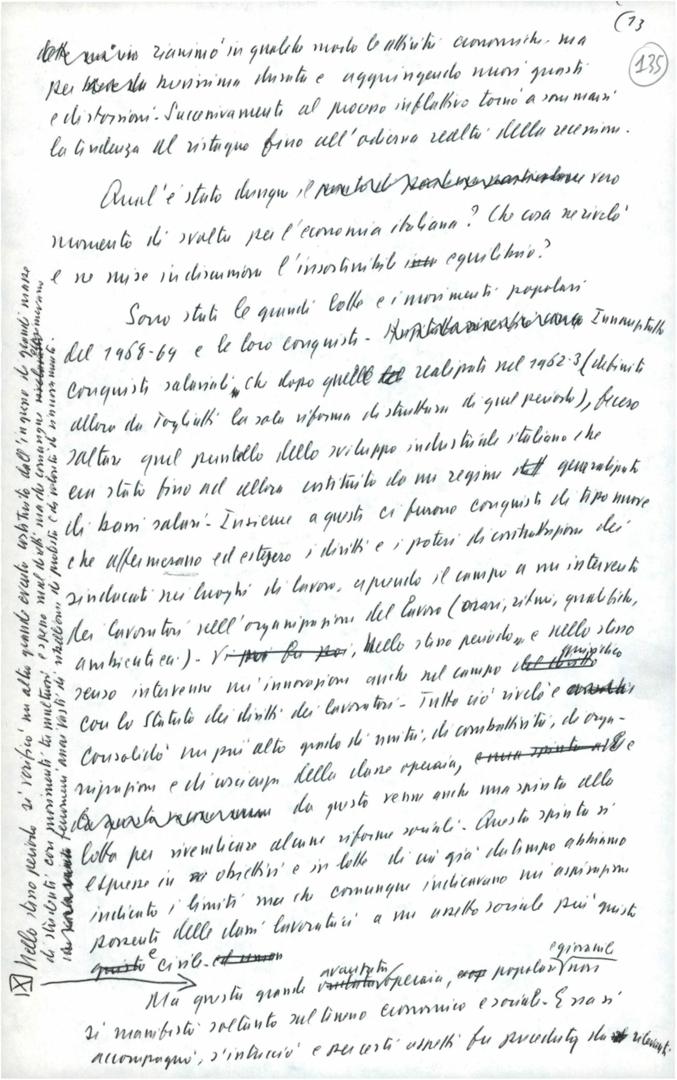 (13
135
rianimò in qualche modo le attività economiche ma
per brevissima durata e aggiungendo nuovi guasti
e distorsioni. Successivamente al processo inflattivo tornò a sommarsi
la tendenza al ristagno fino all'odierna realtà della recessione.
Qual'è stato dunque il vero
momento di svolta per l'economia italiana? Che cosa ne rivelò
e ne mise in discussione l'insostenibile equilibrio?
Sono stati le grandi lotte e i movimenti popolari
del 1968-69 e le loro conquiste. Innanzitutto
conquiste salariali, che dopo quelle realizzate nel 1962-3 (definite
allora da Togliatti la sola riforma di struttura di quel periodo), fecero
saltare quel puntello dello sviluppo industriale italiano che
era stato fino ad allora costituito da un regime generalizzato
di bassi salari. Insieme a questi ci furono conquiste di tipo nuovo
che affermarono ed estesero i diritti e i poteri di contrattazione dei
sindacati nei luoghi di lavoro, aprendo il campo a un intervento
dei lavoratori sull'organizzazione del lavoro (orari, ritmi, qualifiche,
ambiente ecc.). Nello stesso periodo, e nello stesso
senso intervenne un'innovazione anche nel campo giuridico
con lo Statuto dei diritti dei lavoratori. Tutto ciò rivelò e
consolidò un più alto grado di unità, di combattività, di orga-
nizzazione e di coscienza della classe operaia, e
da questo venne anche una spinta alla
lotta per rivendicare alcune riforme sociali. Questa spinta si
espresse in obiettivi e in lotte di cui già da tempo abbiamo
indicato i limiti ma che comunque indicavano un'aspirazione
possente delle classi lavoratrici a un assetto sociale più giusto
e civile.
Ma questa grande avanzata operaia, popolare e giovanile non
si manifestò soltanto sul terreno economico e sociale. Essa si
accompagnò, s'intrecciò e per certi aspetti fu preceduta da rilevanti
Nello stesso periodo si verificò un altro grande evento costituito dall'ingresso di grandi masse
di studenti con movimenti tumultuosi, e spesso mal diretti ma che comunque esprimevano
fenomeni assai vasti di ribellione, di protesta e di volontà di rinnovamento.